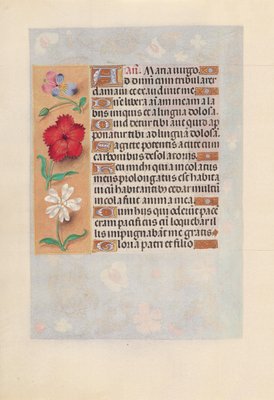 An͂. Maria virgo.
Ad dominū cum tribularer
clamaui et exaudiuit me.
Domine libera aīam meam a la
bijs iniquis et a lingua dolosa.
Quid detur tibi aut quid ap
ponatur tibi ad linguā dolosā.
Sagitte potentis acute cum
carbonibus desolatorijs.
Heu michi quia incolatus
meus prolongatus est habita
ui cū habitantibꝰ cedar multū
incola fuit anima mea.
Cum hijs qui oderunt pacē
eram pacificus cū loquebar il
lis impugnabāt me gratis.
Gloria patri et filio